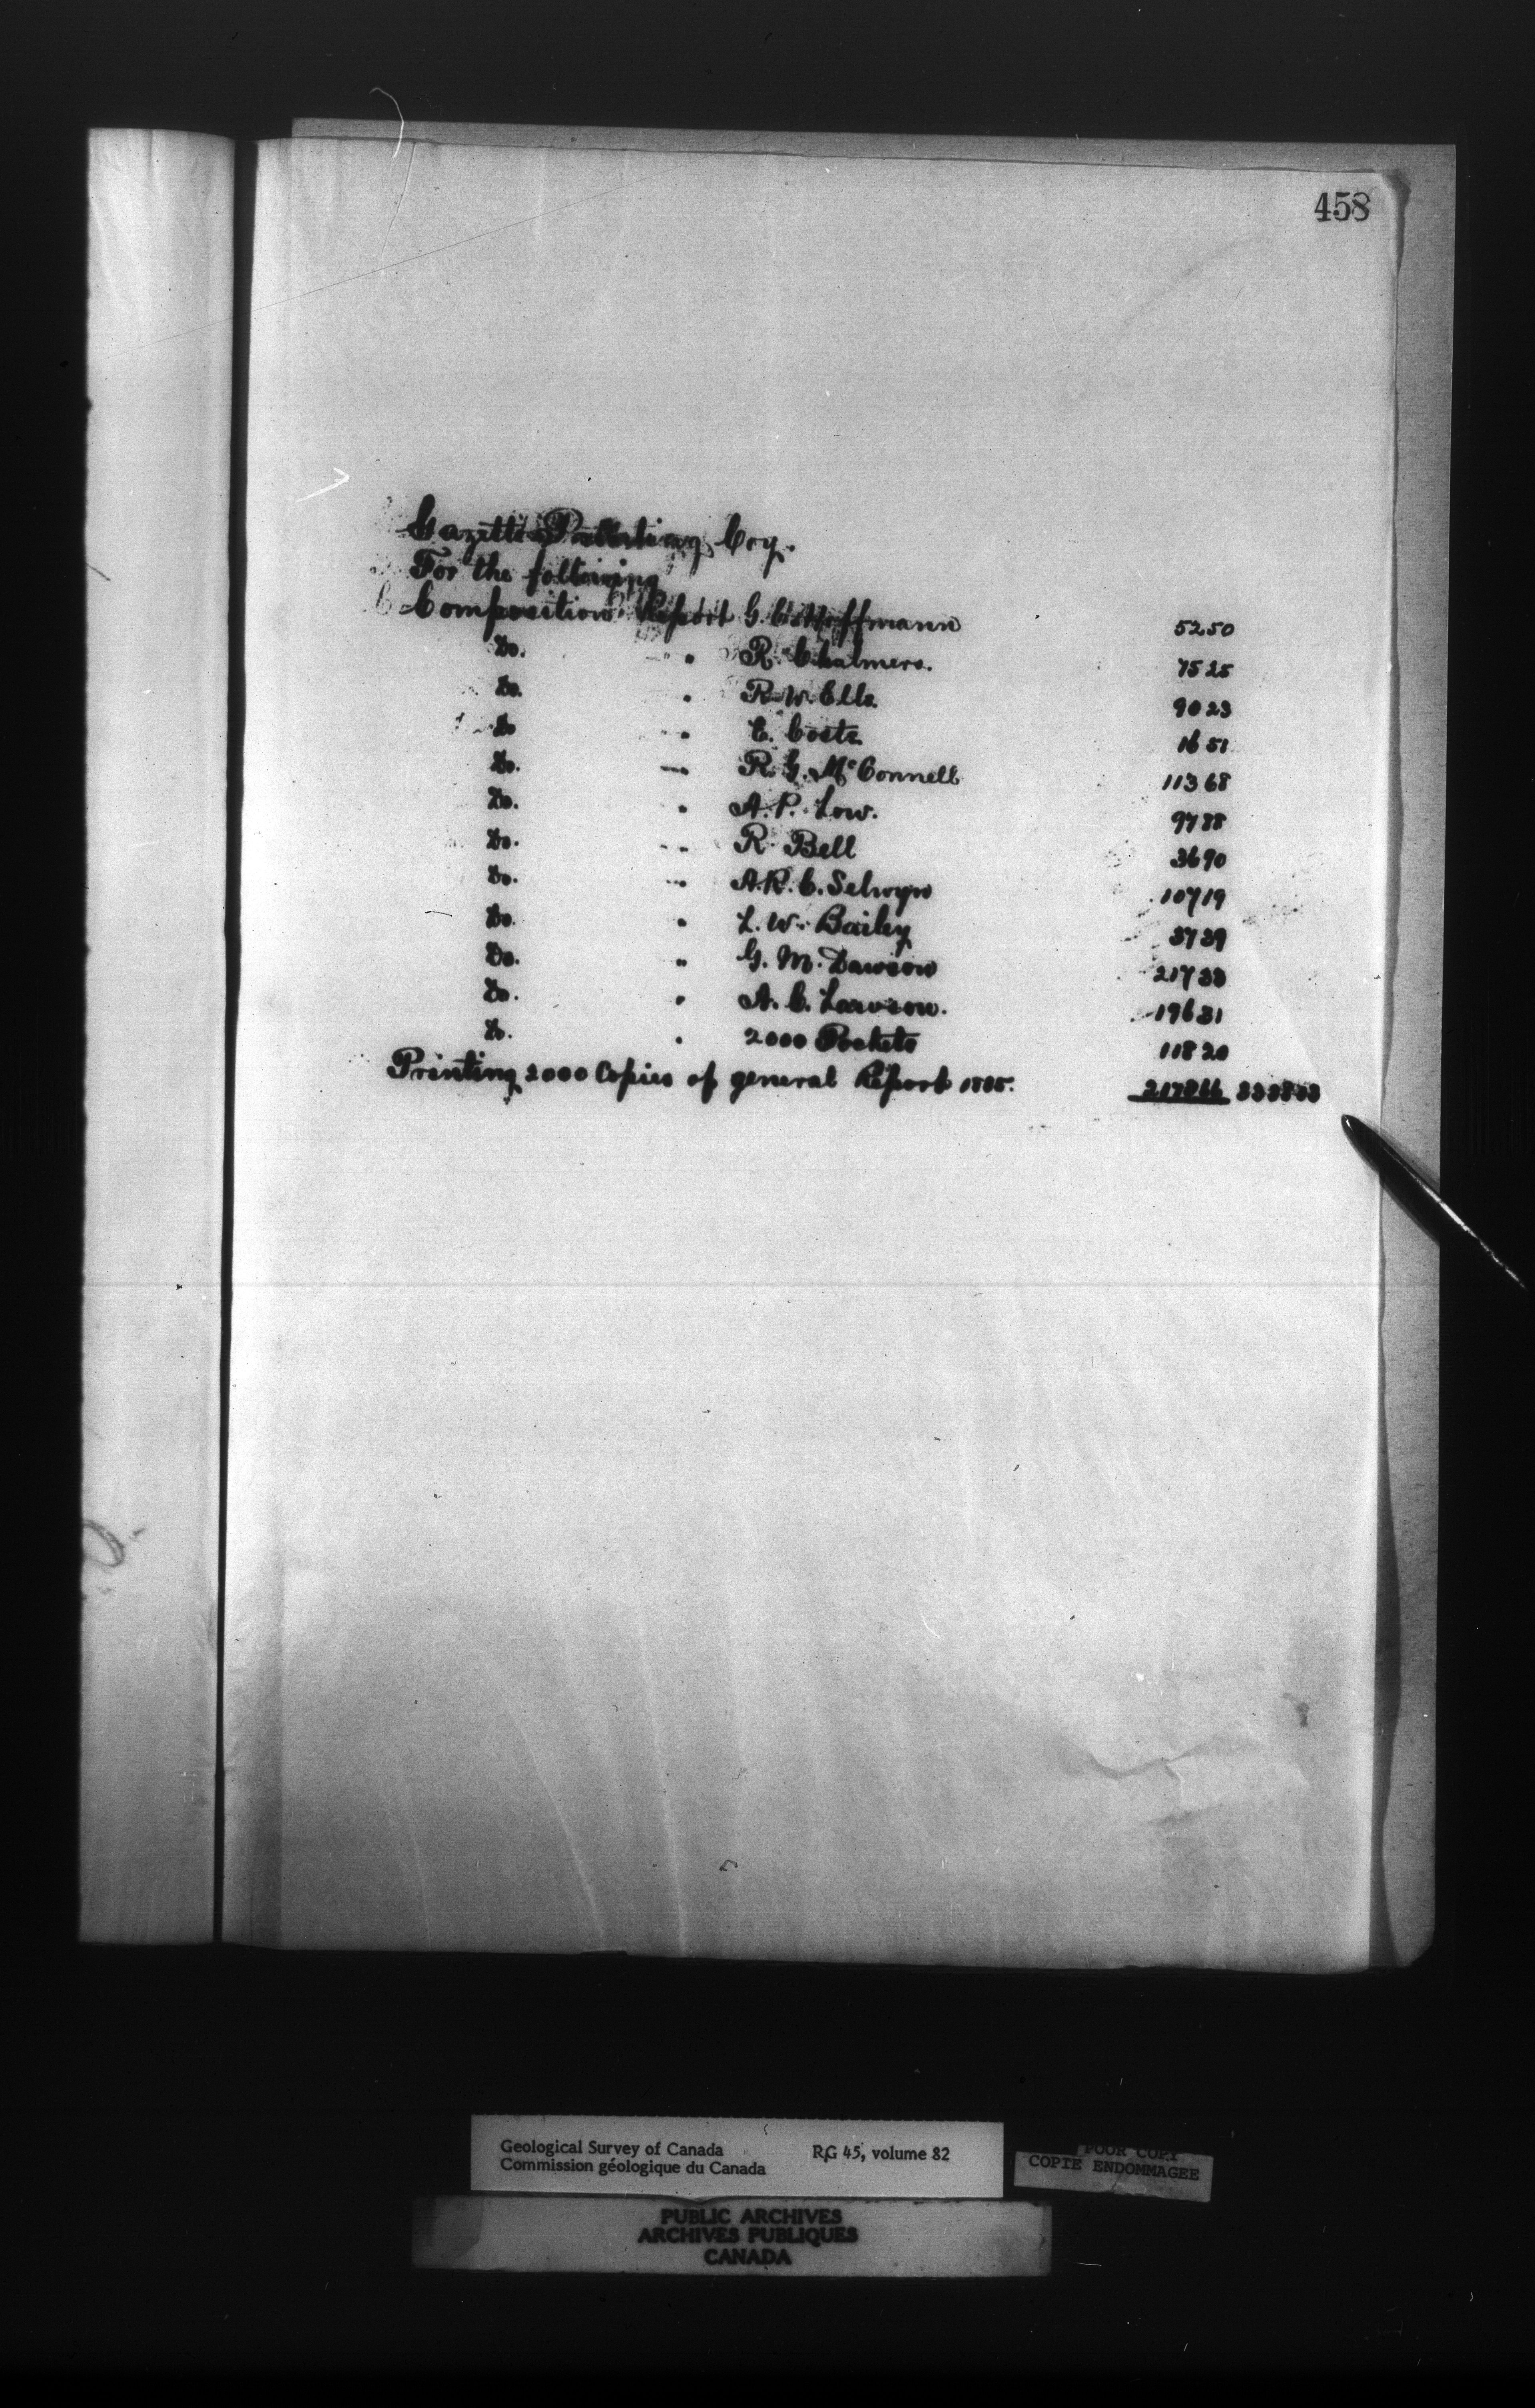 458
Gazette Printing Coy.
For the following
Composition Report G. C. Hoffmann 52 50
Do. " R. Chalmers. 75 25
Do. " R. W. Ells. 90 23
Do " E. Coste 16 51
Do. " R. G. McConnell 113 68
Do. " A. P. Low. 97 88
Do. " R. Bell 36 90
Do. " A. R. C. Selwyn 107 19
Do. " L. W. Bailey 37 39
Do. " G. M. Dawson 217 33
Do. " A. C. Lawson. 196 31
Do. " 2000 Pockets 118 20
Printing 2000 Copies of general Report 1885. 2178 66 3338 03
Geological Survey of Canada RG 45, volume 82
Commission géologique du Canada
POOR COPY
COPIE ENDOMMAGEE
PUBLIC ARCHIVES
ARCHIVES PUBLIQUES
CANADA